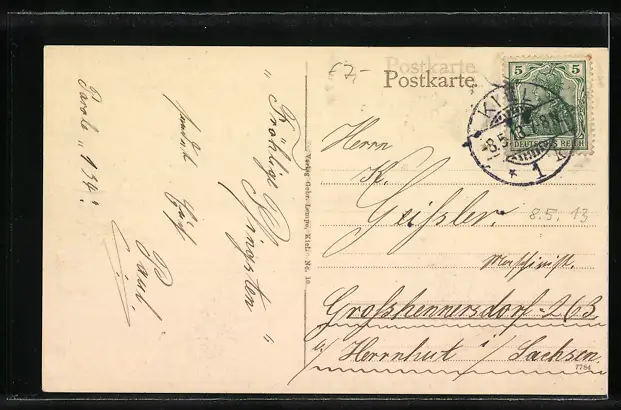 57,-
Postkarte
Postkarte
5 5
DEUTSCHES REICH
KIEL
8.5.13. 8-N
* 1 k
„Fröhliche Pfingsten"
sendet Euch
Paul.
Parole „134"
Verlag Gebr. Lempe, Kiel. No. 10
Herrn
K. Geißler.
8.5.13
Maschinist.
Großhennersdorf-263
b/ Herrnhut i/ Sachsen.
7784